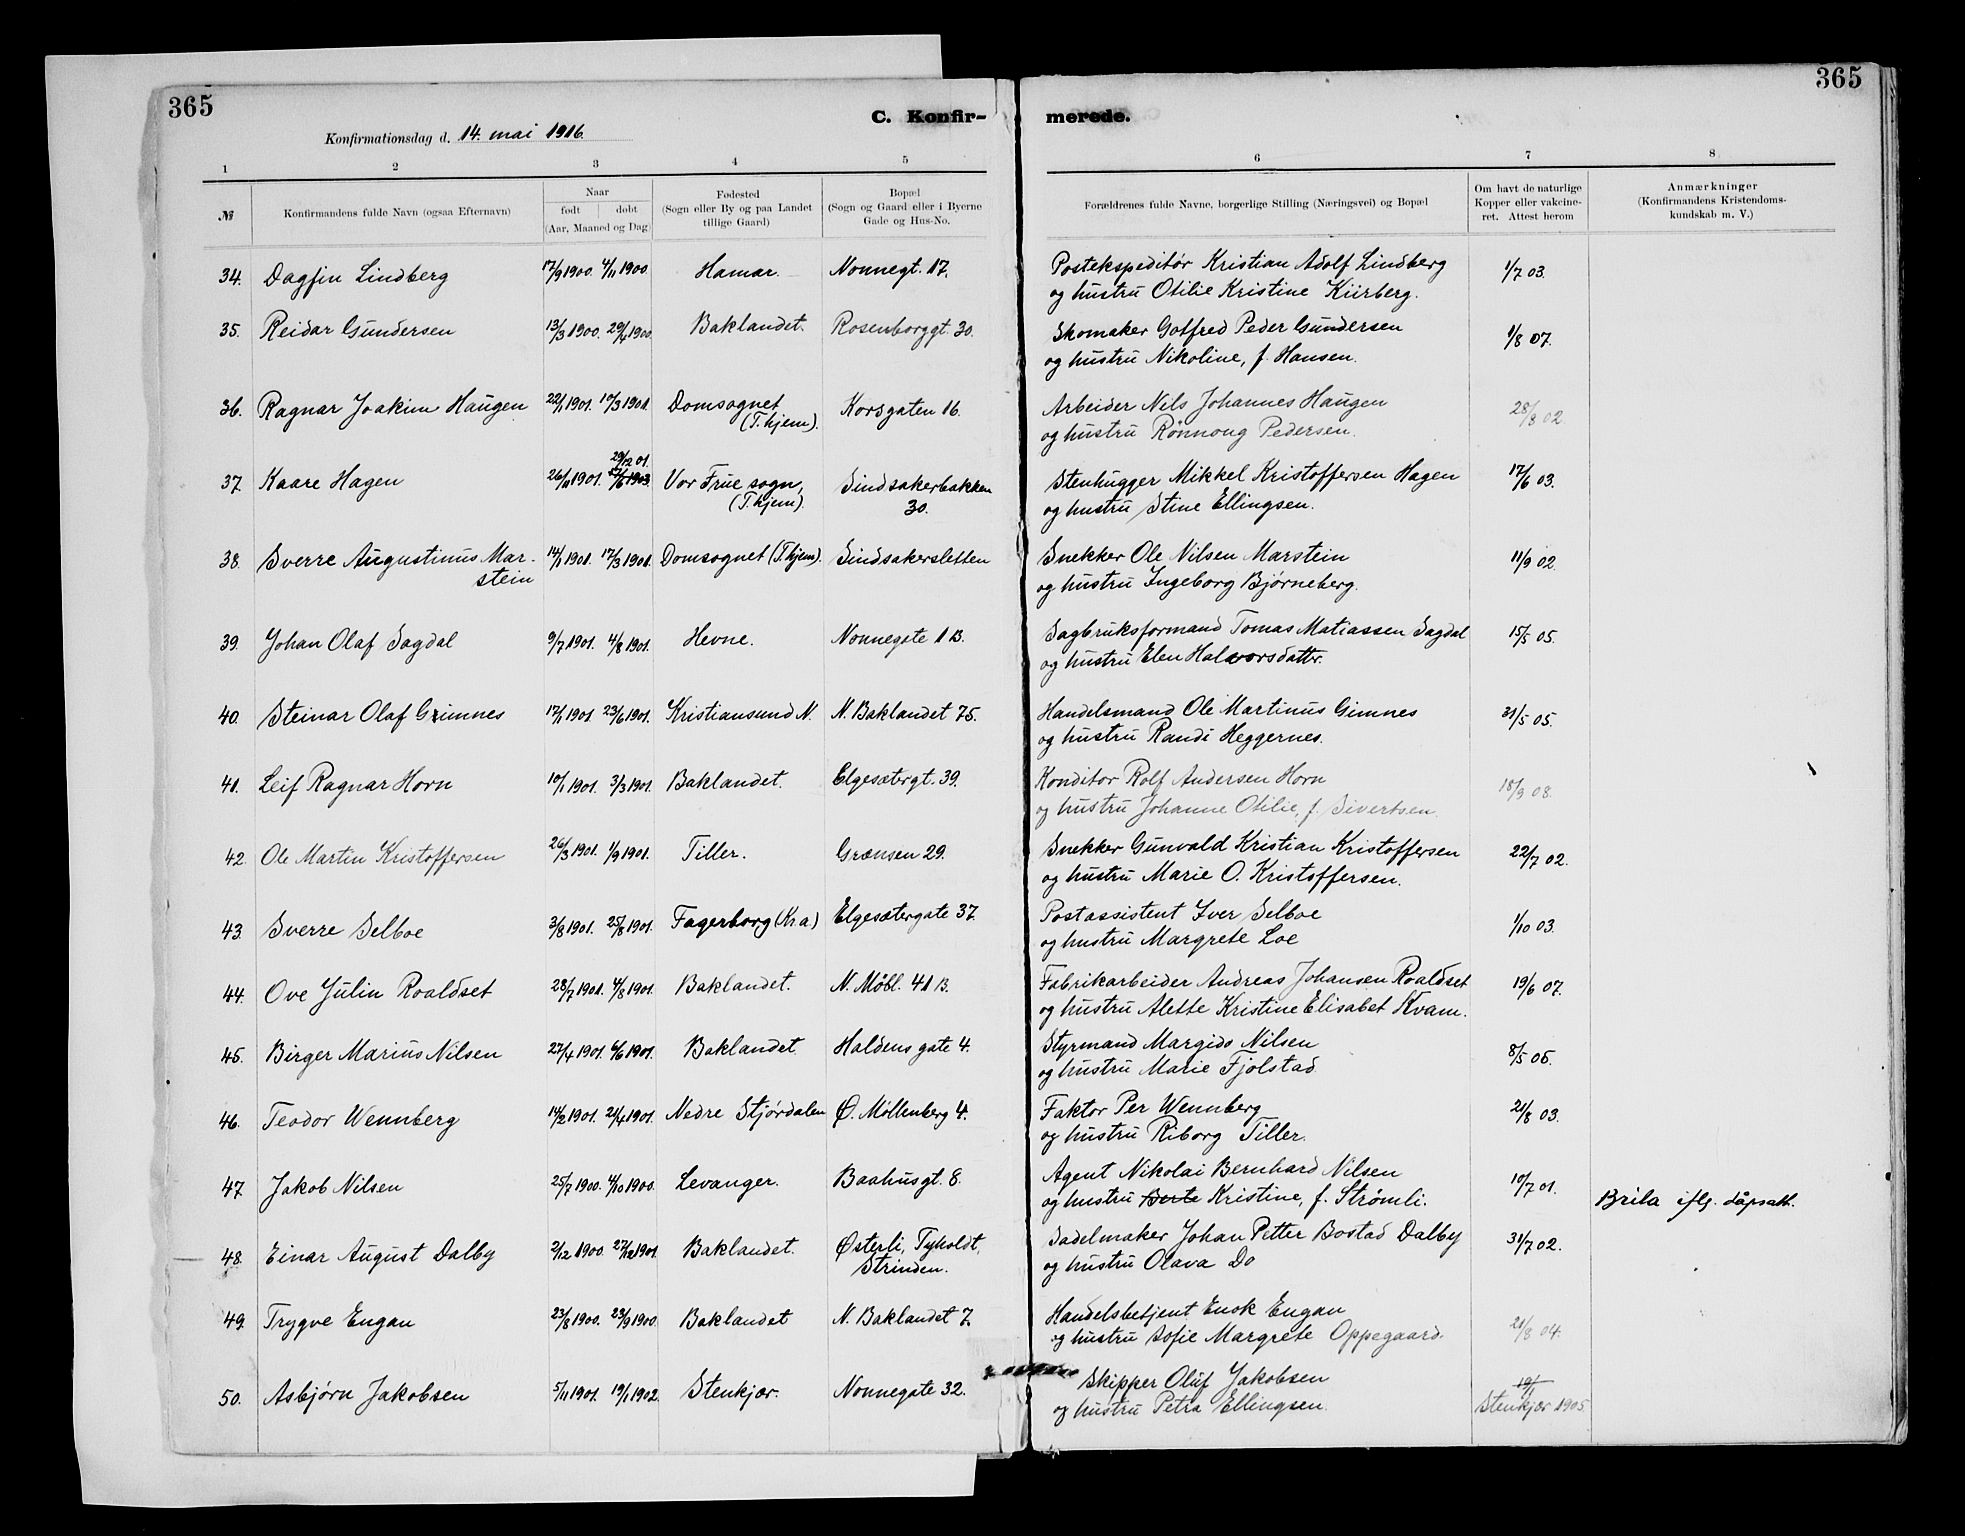 365
365
C. Konfir-
merede.
Konfirmationsdag d. 14. mai 1916.
1 2 3 4 5 6 7 8
№ Konfirmandens fulde Navn (ogsaa Efternavn) Naar født døbt (Aar, Maaned og Dag) Fødested (Sogn eller By og paa Landet tillige Gaard) Bopæl (Sogn og Gaard eller i Byerne Gade og Hus-No. Forældrenes fulde Navne, borgerlige Stilling (Næringsvei) og Bopæl Om havt de naturlige Kopper eller vakcineret. Attest herom Anmærkninger (Konfirmandens Kristendomskundskab m. V.)
34. Dagfin Lindberg 17/9 1900. 4/11 1900. Hamar. Nonnegt. 17. Postekspeditør Kristian Adolf Lindberg 1/7 03.
og hustru Otilie Kristine Kiirberg.
35. Reidar Gundersen 13/3 1900. 29/4 1900. Baklandet. Rosenborggt. 30. Skomaker Gotfred Peder Gundersen 1/8 07.
og hustru Nikoline, f. Hansen.
36. Ragnar Joakim Haugen 22/1 1901. 10/3 1901. Domsognet Korsgaten 16. Arbeider Nels Johannes Haugen 28/8 02
(T.hjem). og hustru Rønnong Pedersen.
29/12 01.
37. Kaare Hagen 26/11 1901. Vor Frue sogn, Sindsakerbakken Stenhugger Mikkel Kristoffersen Hagen 17/6 03.
(T.hjem). 30. og hustru Stine Ellingsen.
38. Sverre Augustinus Mar- 14/1 1901. 17/3 1901. Domsognet (T.hjem). Sindsakersletten Snekker Ole Nilsen Marstein 11/9 02.
stein og hustru Ingeborg Bjørneberg.
39. Johan Olaf Sagdal 9/7 1901. 4/8 1901. Hevne. Nonnegate 1 B. Sagbruksformand Tomas Matiassen Sagdal 15/5 05.
og hustru Elen Halvorsdatter.
40. Steinar Olaf Gimnes 17/1 1901. 23/6 1901. Kristiansund N. N. Baklandet 75. Handelsmand Ole Martinus Gimnes 31/5 05.
og hustru Randi Heggernes.
41. Leif Ragnar Horn 10/1 1901. 3/3 1901. Baklandet. Elgesætergt. 39. Konditor Rolf Andersen Horn 18/9 08.
og hustru Johanne Otilie, f. Sivertsen.
42. Ole Martin Kristoffersen 26/3 1901. 1/9 1901. Tiller. Grænsen 29. Snekker Gunvald Kristian Kristoffersen 22/7 02.
og hustru Marie O. Kristoffersen.
43. Sverre Selboe 3/8 1901. 25/8 1901. Fagerborg (Kr.a) Elgesætergate 37. Postassistent Iver Selboe 1/10 03.
og hustru Margrete Loe
44. Ove Julin Roaldset 28/7 1901. 4/8 1901. Baklandet. N. Møbl. 41 B. Fabrikarbeider Andreas Johansen Roaldset 19/6 07.
og hustru Alette Kristine Elisabet Kvam.
45. Birger Marius Nilsen 27/4 1901. 6/6 1901. Baklandet. Haldens gate 4. Styrmand Margido Nilsen 8/5 05.
og hustru Marie Fjolstad
46. Teodor Wennberg 14/2 1901. 21/4 1901. Nedre Stjørdalen Ø. Møllenberg 4. Faktor Per Wennberg 21/8 03.
og hustru Riborg Tiller.
47. Jakob Nilsen 25/7 1900. 4/10 1900. Levanger. Baahusgt. 8. Agent Nikolai Bernhard Nilsen 10/7 01.
og hustru Berte Kristine, f. Strømli. Brita iflg. dåpsatt.
48. Einar August Dalby 2/12 1900. 27/12 1901. Baklandet. Østerli, Tyholdt, Sadelmaker Johan Petter Bostad Dalby 31/7 02.
Strinden. og hustru Olava Do
49. Trygve Engan 23/8 1900. 23/9 1900. Baklandet N. Baklandet 7. Handelsbetjent Enok Engan 21/8 04.
og hustru Sofie Margrete Oppegaard.
50. Asbjørn Jakobsen 5/11 1901. 19/1 1902. Stenkjær. Nonnegate 32. Skipper Oluf Jakobsen 19/1
og hustru Petra Ellingsen. Stenkjær 1905.